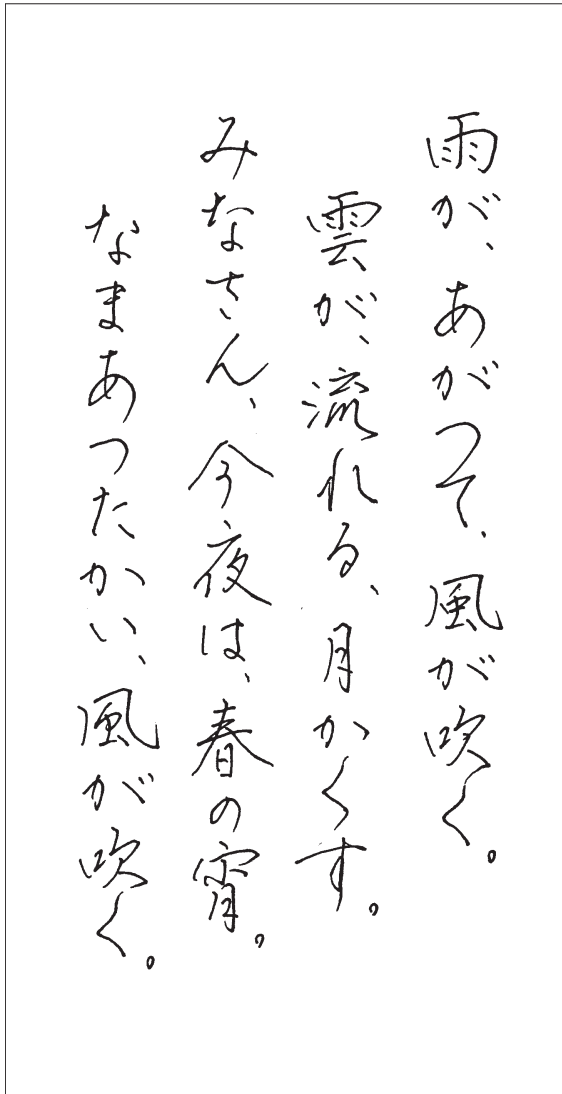 雨が、あがつて、風が吹く。
雲が、流れる、月かくす。
みなさん、今夜は、春の宵。
なまあつたかい、風が吹く。